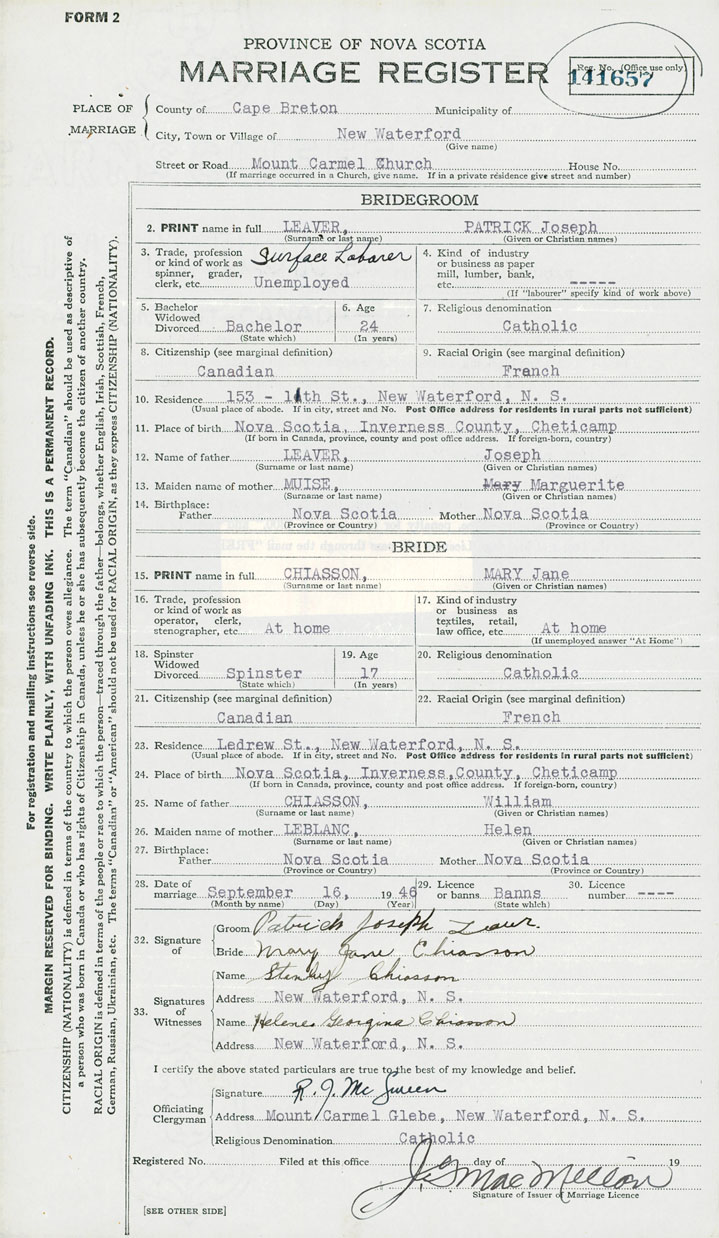 FORM 2
PROVINCE OF NOVA SCOTIA
MARRIAGE REGISTER
Reg. No. (Office use only)
141657
PLACE OF MARRIAGE
County of Cape Breton Municipality of
City, Town or Village of New Waterford
(Give name)
Street or Road Mount Carmel Church House No.
(If marriage occurred in a Church, give name. If in a private residence give street and number)
BRIDEGROOM
2. PRINT name in full LEAVER, PATRICK Joseph
(Surname or last name) (Given or Christian names)
3. Trade, profession or kind of work as spinner, grader, clerk, etc. Surface Laborer Unemployed
4. Kind of industry or business as paper mill, lumber, bank, etc. -----
(If "labourer" specify kind of work above)
5. Bachelor Widowed Divorced Bachelor
(State which)
6. Age 24
(In years)
7. Religious denomination
Catholic
8. Citizenship (see marginal definition)
Canadian
9. Racial Origin (see marginal definition)
French
10. Residence 153 - 11th St., New Waterford, N. S.
(Usual place of abode. If in city, street and No. Post Office address for residents in rural parts not sufficient)
11. Place of birth Nova Scotia, Inverness County, Cheticamp
(If born in Canada, province, county and post office address. If foreign-born, country)
12. Name of father LEAVER, Joseph
(Surname or last name) (Given or Christian names)
13. Maiden name of mother MUISE, Mary Marguerite
(Surname or last name) (Given or Christian names)
14. Birthplace:
Father Nova Scotia Mother Nova Scotia
(Province or Country) (Province or Country)
BRIDE
15. PRINT name in full CHIASSON, MARY Jane
(Surname or last name) (Given or Christian names)
16. Trade, profession or kind of work as operator, clerk, stenographer, etc. At home
17. Kind of industry or business as textiles, retail, law office, etc. At home
(If unemployed answer "At Home")
18. Spinster Widowed Divorced Spinster
(State which)
19. Age 17
(In years)
20. Religious denomination
Catholic
21. Citizenship (see marginal definition)
Canadian
22. Racial Origin (see marginal definition)
French
23. Residence Ledrew St., New Waterford, N. S.
(Usual place of abode. If in city, street and No. Post Office address for residents in rural parts not sufficient)
24. Place of birth Nova Scotia, Inverness, County, Cheticamp
(If born in Canada, province, county and post office address. If foreign-born, country)
25. Name of father CHIASSON, William
(Surname or last name) (Given or Christian names)
26. Maiden name of mother LEBLANC, Helen
(Surname or last name) (Given or Christian names)
27. Birthplace:
Father Nova Scotia Mother Nova Scotia
(Province or Country) (Province or Country)
28. Date of marriage September 16, 1946
(Month by name) (Day) (Year)
29. Licence or banns Banns
(State which)
30. Licence number ----
32. Signature of
Groom Patrick Joseph Leaver.
Bride Mary Jane Chiasson
33. Signatures of Witnesses
Name Stanley Chiasson
Address New Waterford, N. S.
Name Helene Georgina Chiasson
Address New Waterford, N. S.
I certify the above stated particulars are true to the best of my knowledge and belief.
Officiating Clergyman
Signature R. J. McSween
Address Mount Carmel Glebe, New Waterford, N. S.
Religious Denomination Catholic
Registered No. Filed at this office day of 19
MacMellon
Signature of Issuer of Marriage Licence
[SEE OTHER SIDE]
For registration and mailing instructions see reverse side.
MARGIN RESERVED FOR BINDING. WRITE PLAINLY, WITH UNFADING INK. THIS IS A PERMANENT RECORD.
CITIZENSHIP (NATIONALITY) is defined in terms of the country to which the person owes allegiance. The term "Canadian" should be used as descriptive of
a person who was born in Canada or who has rights of Citizenship in Canada, unless he or she has subsequently become the citizen of another country.
RACIAL ORIGIN is defined in terms of the people or race to which the person—traced through the father—belongs, whether English, Irish, Scottish, French,
German, Russian, Ukrainian, etc. The terms "Canadian" or "American" should not be used for RACIAL ORIGIN, as they express CITIZENSHIP (NATIONALITY).